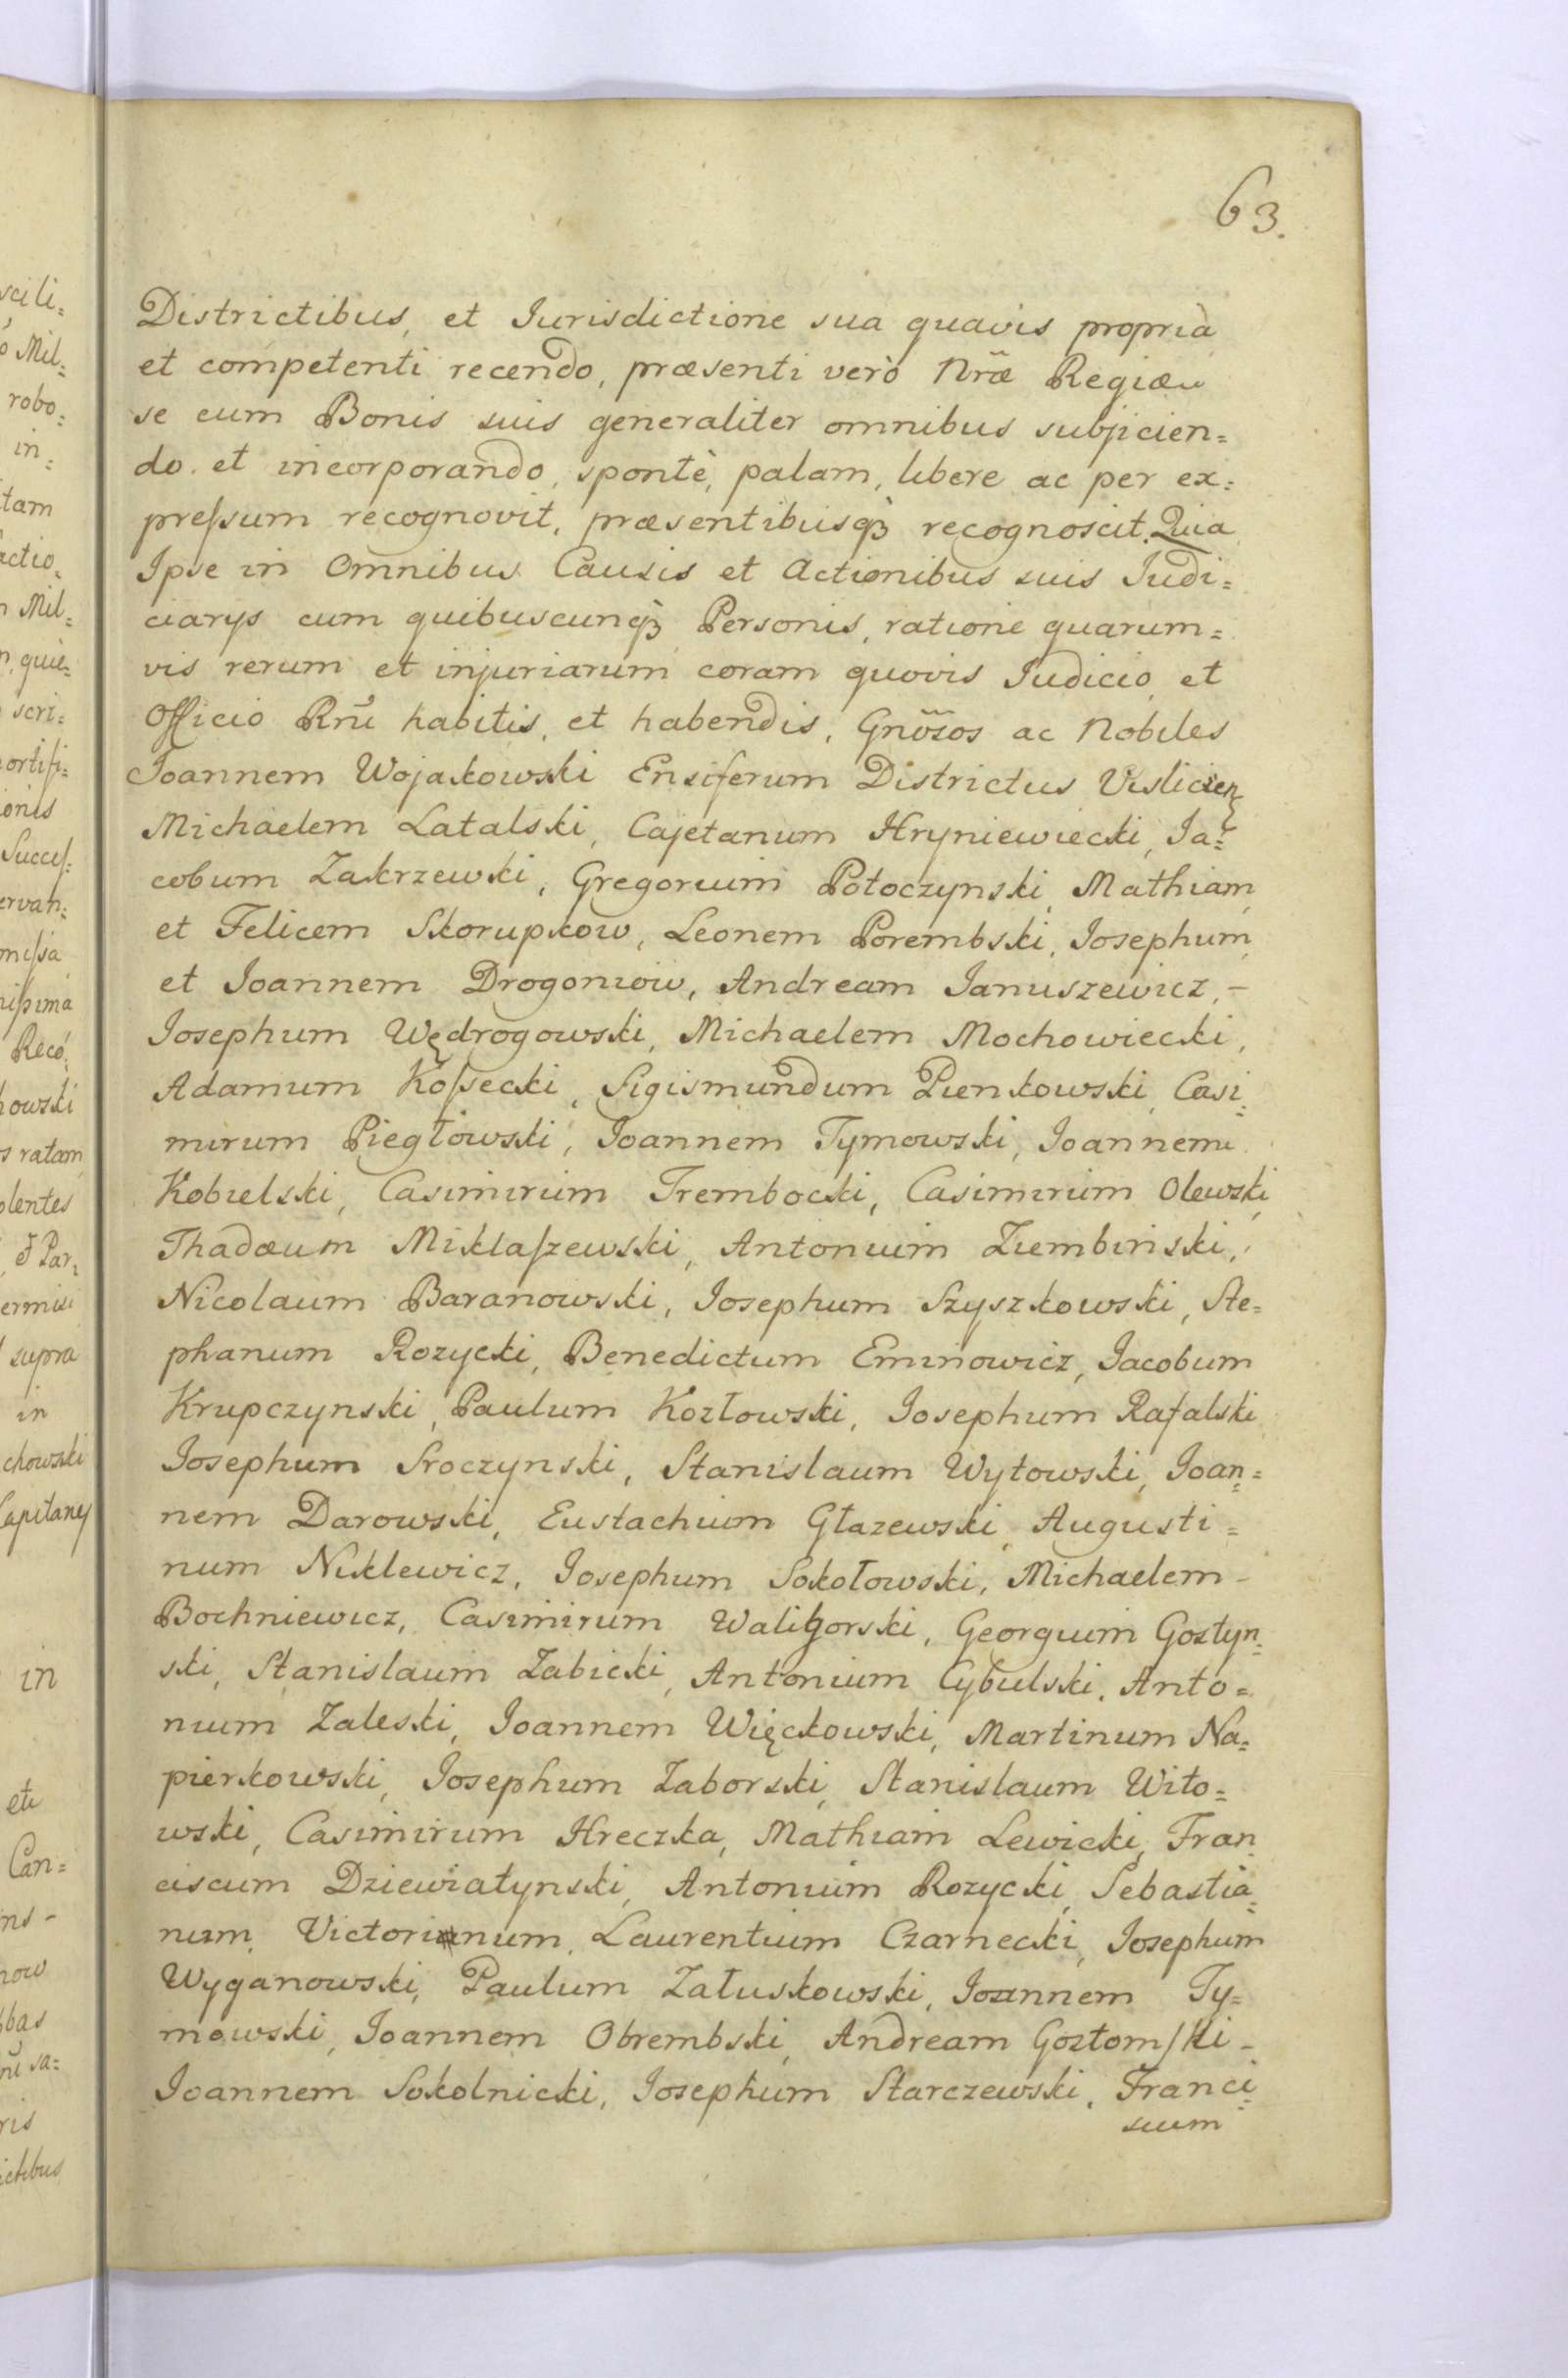 63.
Districtibus, et Jurisdictione sua quavis propriâ
et competenti recendo, præsenti verò Nr̃æ Regiæ
se cum Bonis suis generaliter omnibus subjicien=
do et incorporando, spontè, palam, libere ac per ex=
preſsum recognovit, præsentibusqꝫ recognoscit. Quia
Ipse in Omnibus Causis et Actionibus suis Judi=
ciarys cum quibuscunqꝫ Personis, ratione quarum=
vis rerum et injuriarum coram quovis Judicio, et
Officio Rñi habitis, et habendis, Gñosos ac Nobiles
Joannem Wojakowski Ensiferum Districtus Vislicien
Michaelem Latalski, Cajetanum Hryniewiecki, Ja=
cobum Zakrzewski, Gregorium Potoczynski, Mathiam,
et Felicem Skorupkow, Leonem Porembski, Josephum,
et Joannem Drogoniow, Andream Januszewicz, -
Josephum Wędrogowski, Michaelem Mochowiecki,
Adamum Koſsecki, Sigismundum Pienkowski, Casi=
mirum Piegłowski, Joannem Tymowski, Joannem
Kobielski, Casimirum Trembocki, Casimirum Olewski,
Thadæum Miklaſzewski, Antonium Ziembinski,
Nicolaum Baranowski, Josephum Szyszkowski, Ste=
phanum Rozycki, Benedictum Eminowicz, Jacobum
Krupczynski, Paulum Kozłowski, Josephum Rafalski
Josephum Sroczynski, Stanislaum Wytowski, Joan=
nem Darowski, Eustachium Głazewski, Augusti=
num Niklewicz, Josephum Sokołowski, Michaelem -
Bochniewicz, Casimirum Waligorski, Georgium Gostyn=
ski, Stanislaum Zabicki, Antonium Cybulski, Anto=
nium Zaleski, Joannem Więckowski, Martinum Na=
pierkowski, Josephum Zaborski, Stanislaum Wito=
wski, Casimirum Hreczka, Mathiam Lewicki, Fran
ciscum Dziewiatynski, Antonium Rozycki, Sebastia=
num, Victorianum, Laurentium Czarnecki, Josephum
Wyganowski, Paulum Załuskowski, Joannem Ty=
mowski, Joannem Obrembski, Andream Gostomſki -
Joannem Sokolnicki, Josephum Starczewski, Franci=
scum